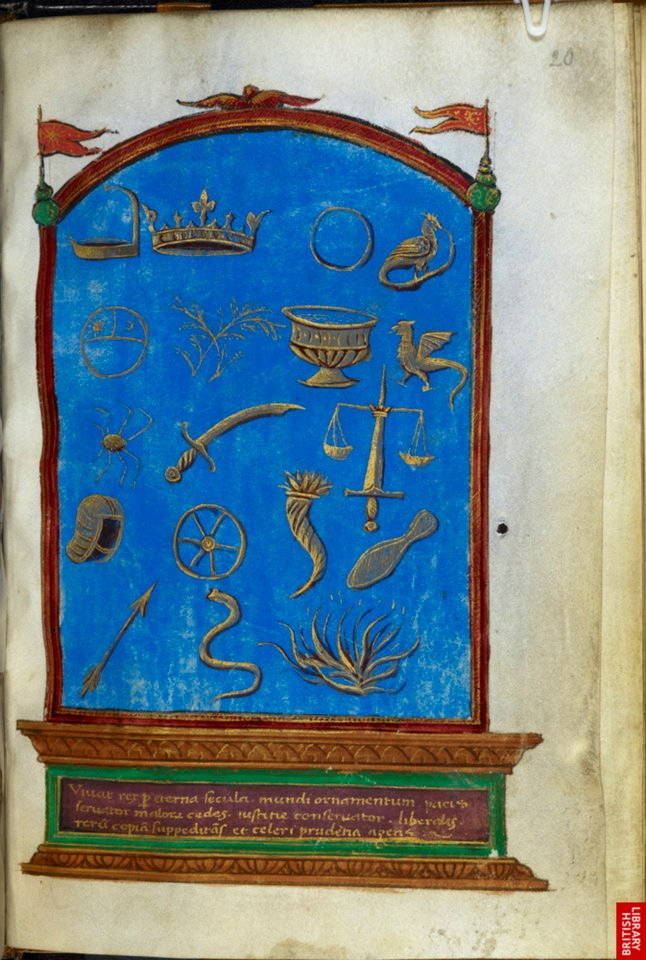 20
Vivat rex p eterna secula mundi ornamentum pacis
servator malorz cedes iustitie conservator . liberalis .
rerū copiā suppeditās et celeri prudētia agens
BRITISH
LIBRARY